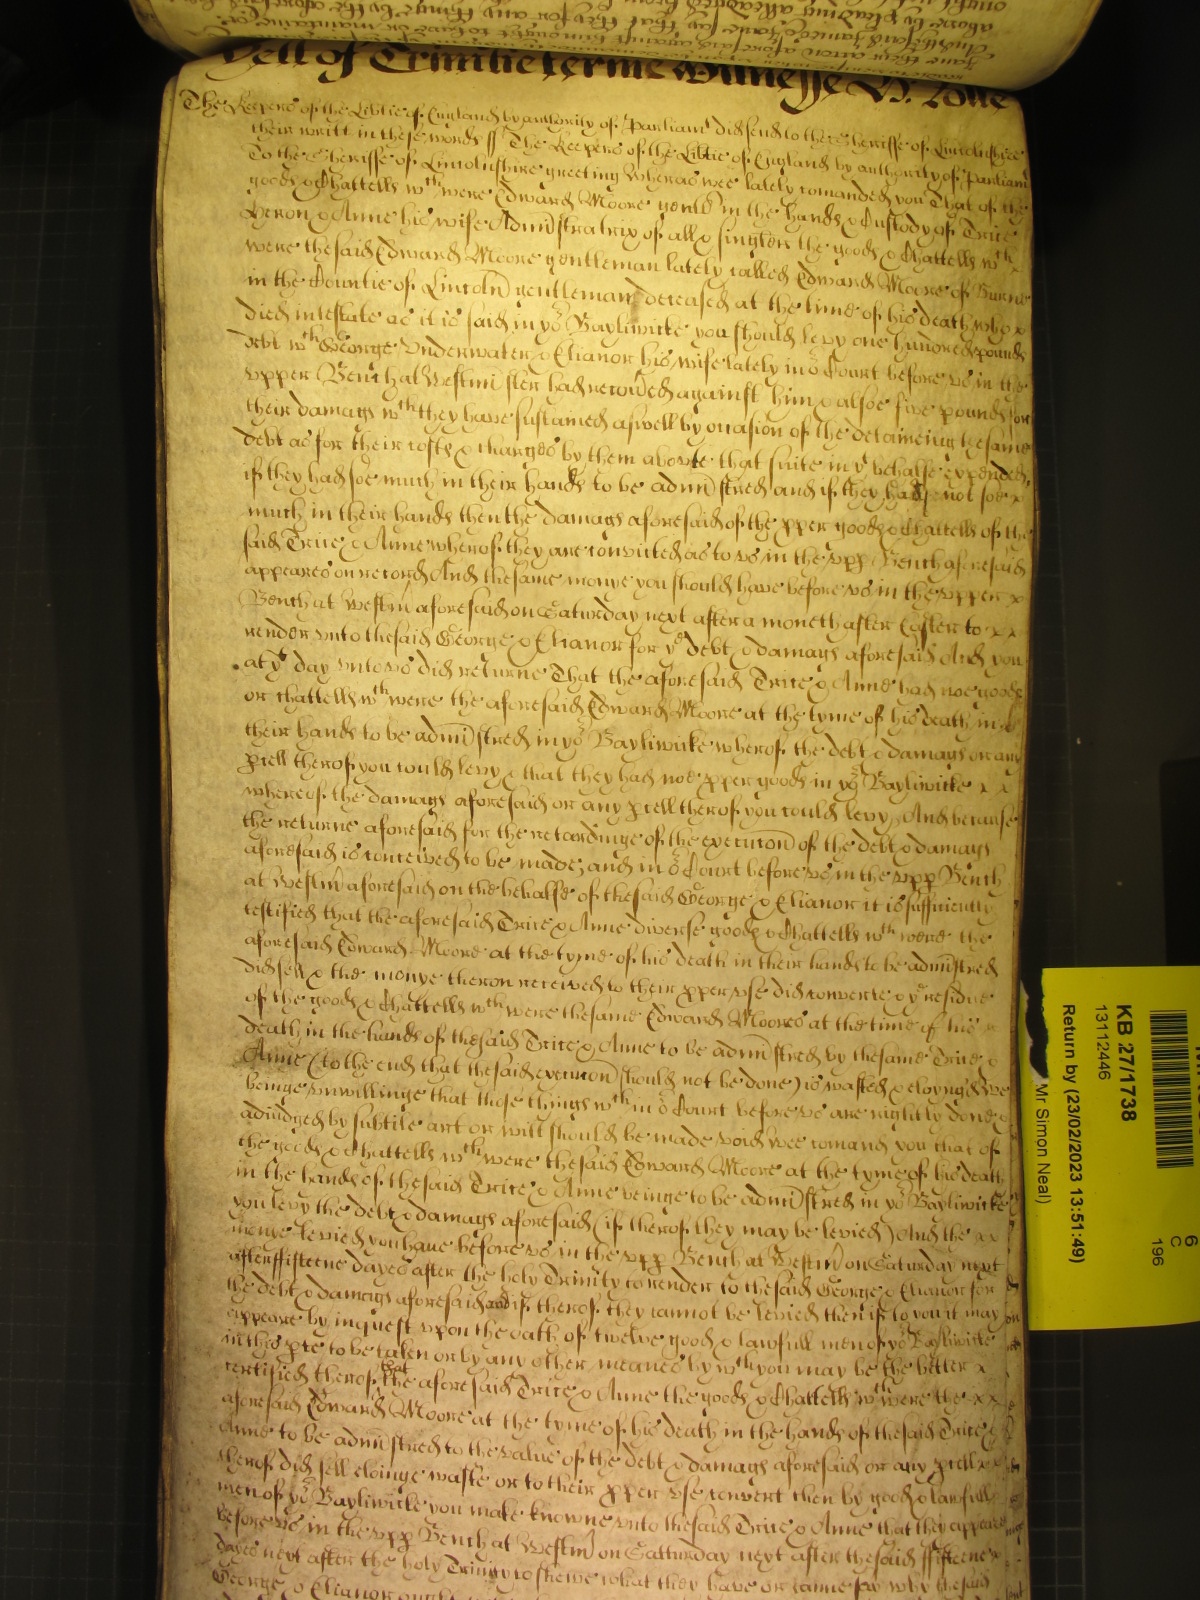 Yett of Trinitie terme Witnesse H. Rolle
The Keepers of the Libtie of England by authority of Parliamt did send to the Sheriffe of Lincolnshire
their writt in these words ss The Keepers of the Libtie of England by authority of Parliamt
To the Sheriffe of Lincolnshire greeting Wheras wee lately comanded you That of the
goods & Chattells wth were Edward Moore gentl in the hands & Custody of Trice
Heron & Anne his wife Administratrix of all & singler the goods & Chattells wth
were the said Edward Moore gentleman lately called Edward Moore of Burne
in the Countie of Lincoln gentleman deceased at the time of his death who x
died intestate as it is said in yor Bayliwicke you should levy one hundred pounds
debt wth George Underwater & Elianor his wife lately in or Court before us in the
upper Bench at Westminster had recovered against him & alsoe five pounds for
their damags wth they have sustained aswell by occasion of the detaineing the same
debt as for their costs & charges by them aboute that suite in yt behalfe expended,
if they had soe much in their hands to be administred and if they had not soe x
much in their hands then the damags aforesaid of the pper goods & Chattells of the
said Trice & Anne wherof they are convicted as to us in the upp Bench aforesaid
appeares on record And the same monye you should have before us in the upper x
Bench at Westm aforesaid on Saturday next after a moneth after Easter to x x
render unto the said George & Elianor for ye debt & damags aforesaid And you
at yt day unto us did returne That the aforesaid Trice & Anne had noe goods
or chattells wth were the aforesaid Edward Moore at the tyme of his death in
their hands to be administred in yor Bayliwicke wherof the debt & damags or any
pcell therof you could levy & that they had noe pper goods in yor Bayliwicke x x
whereof the damags aforesaid or any pcell therof you could levy, And because
the returne aforesaid for the retardinge of the execucion of the debt & damags
aforesaid is conceived to be made, and in or Court before us in the upp Bench
at Westm aforesaid on the behalfe of the said George & Elianor it is sufficiently
testified that the aforesaid Trice & Anne diverse goods & Chattells wth were the
aforesaid Edward Moore at the tyme of his death in their hands to be administred
did sell & the monye theron received to their pper use did converte & ye residue
of the goods & Chattells wth were the same Edward Moores at the time of his
death in the hands of the said Trice & Anne to be administred by the same Trice &
Anne (to the end that the said execucion should not be done) is wasted & eloyngd wee
beinge unwillinge that those things wth in or Court before us are rightly done &
adiudged by subtile art or will should be made void wee comand you that of
the goods & Chattells wth were the said Edward Moore at the tyme of his death
in the hands of the said Trice & Anne beinge to be administred in yor Bayliwicke
you levy the debt & damags aforesaid (if therof they may be levied) And the x x
monye levied you have before us in the upp Bench at Westm on Saturday next
after fifteene dayes after the holy Trinity to render to the said George & Elianor for
the debt & damags aforesaid and if therof they cannot be levied then if to you it may
appeare by inquest upon the oath of twelve good & lawfull men of yor Bayliwicke
in this pte to be taken or by any other meanes by wth you may be the better x
certified therof that the aforesaid Trice & Anne the goods & Chattells wth were the x x
aforesaid Edward Moore at the tyme of his death in the hands of the said Trice &
Anne to be administred to the value of the debt & damags aforesaid or any pcell x x
therof did sell eloinge waste or to their pper use convert then by good & lawfull
men of yor Bayliwicke you make knowne unto the said Trice & Anne that they appeare
before us in the upp Bench at Westm on Satturday next after the said fifteene x
dayes next after the holy Trinity to shewe what they have or canne say why the said
George & Elianor ought
KB 27/1738
13112446
Return by (23/02/2023 13:51:49)
Mr Simon Neal)
6
C
196